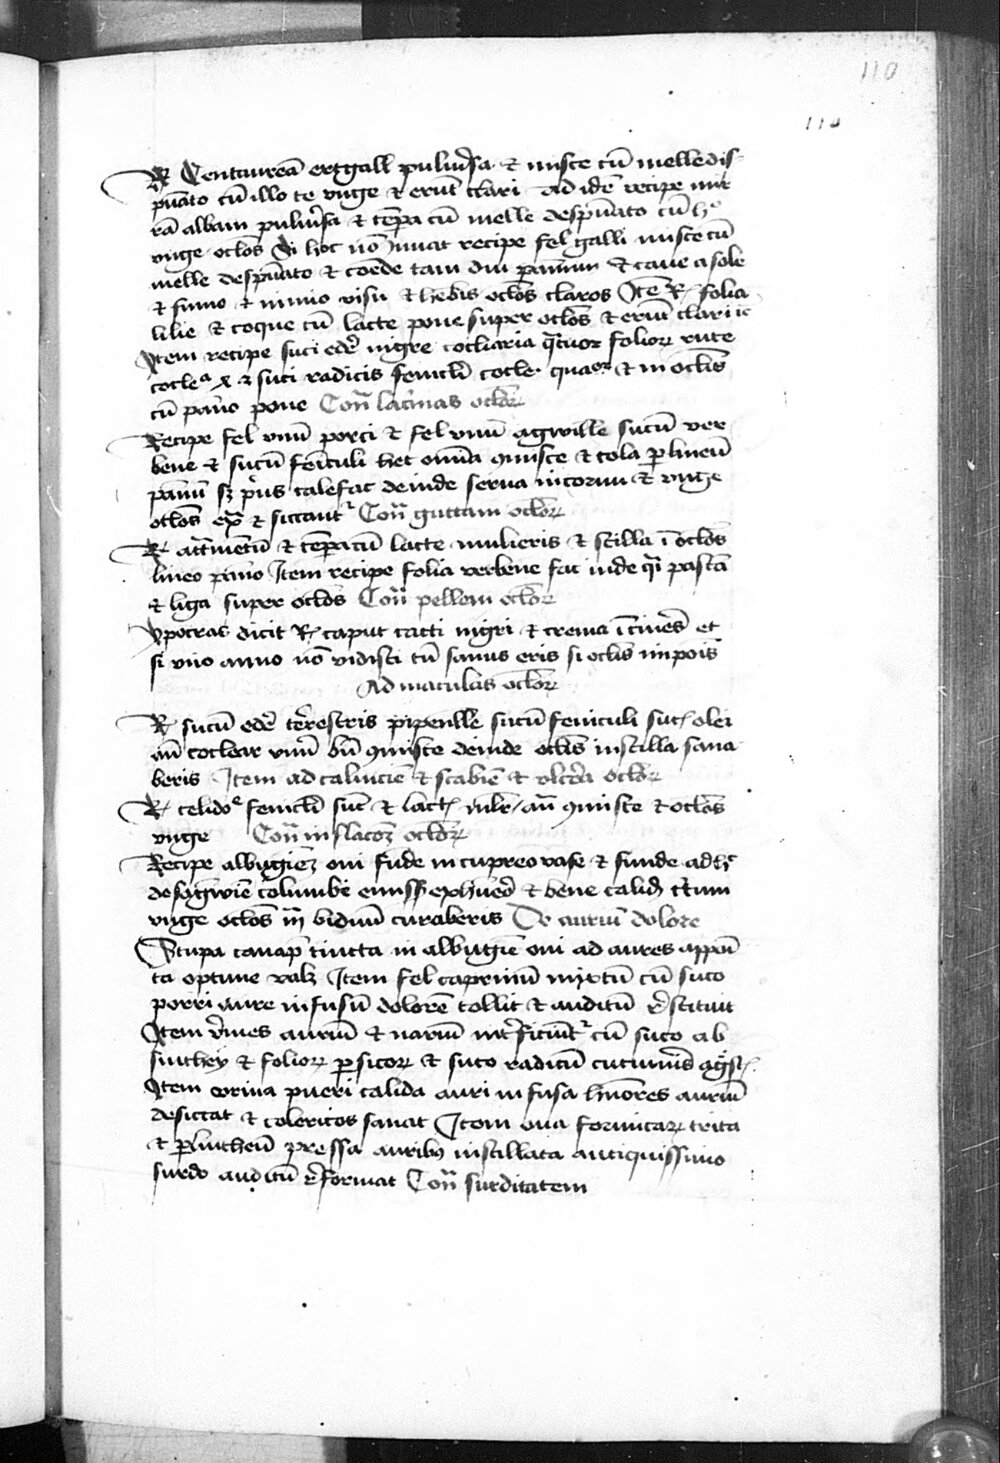 110
110
R Centauream ertgall puluisa et misce cu melle dis
pumato cu illo te unge et erut clari Ad ide recipe mir
ra albam puluisa et tempa cu melle despumato cu hoc
unge oclos Si hoc no iuuat recipe fel galli misce cu
melle despumato et coede tam diu et caue a sole
et fumo et nimio visu et hebis oclos claros Ite R folia
lilie et coque cu lacte pone super oclos et erut clari
Item recipe suci edre nigre cocliaria quatuor folior rute
cocle x et suci radicis fenicli cocle quatuor et in oclis
cu pano pone Contra lacrimas oclor
Recipe fel unu porci et fel unu agwille sucu ver
bene et sucu feniculi hec omia misce et cola per lineu
panu sz prius calefac deinde serua in cornu et unge
oclos ex et siccantur Contra guttam oclor
R attrmentu et tempa cu lacte mulieris et stilla i oclos
lineo pano Item recipe folia verbene fac inde quasi pasta
et liga super oclos Contra pellem oclor
Ypocras dicit R caput catti nigri et crema i cineres et
si uno anno no vidisti tu sanus eris si oclis imponis
Ad maculas oclor
R sucu edre terrestris pipenlle sucu feniculi suci olei
an coclear unu bn misce deinde oclis instilla sana
beris Item ad caliucie et scabie et ulcera oclor
R celido fenicli suc et lact mlr an misce et oclos
unge Contra inflacoz oclor
Recipe albuginez oui funde in cupreo vase et funde ad hoc
de sagwine columbe et bene calid tritum
unge oclos infra biduu curaberis De auriu dolore
Stupa canap tincta in albugie oui ad aures apposi
ta optime valz Item fel caprinu mixtu cu suco
porri aure infusu dolore tollit et auditu restituit
Item vmes auriu et nariu interficiutur cu suco ab
sinthey et folior persicor et suco radicu cucumeris agrest
Item vrina pueri calida auri infusa humores auriu
desiccat et colericos sanat Item oua formicar trita
et per lintheu expressa auribus instillata antiquissimo
surdo auditu reformat Contra surditatem